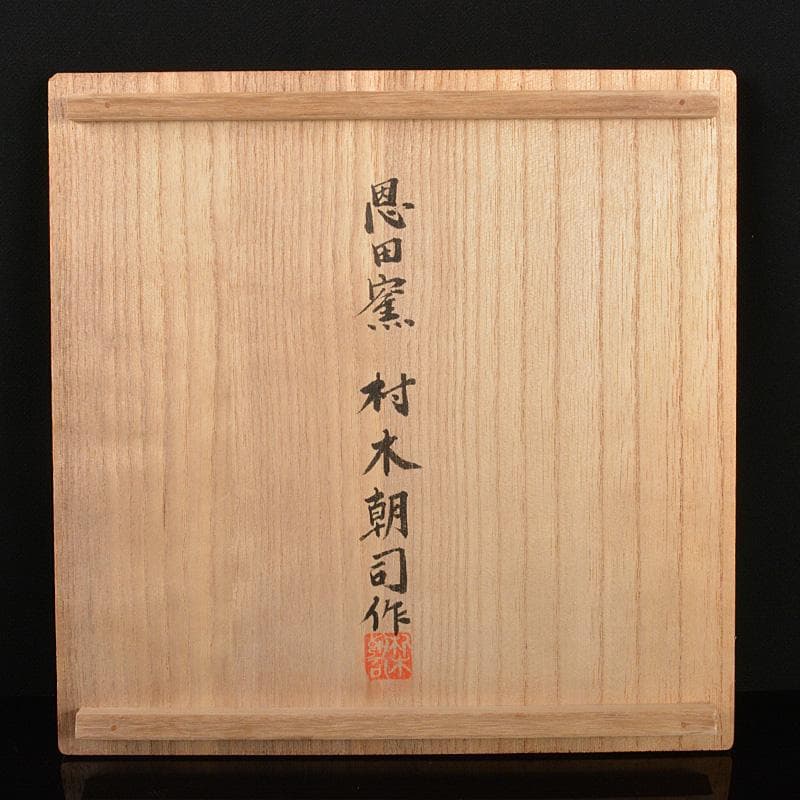 恩田窯 村木朝司作
村木
朝司